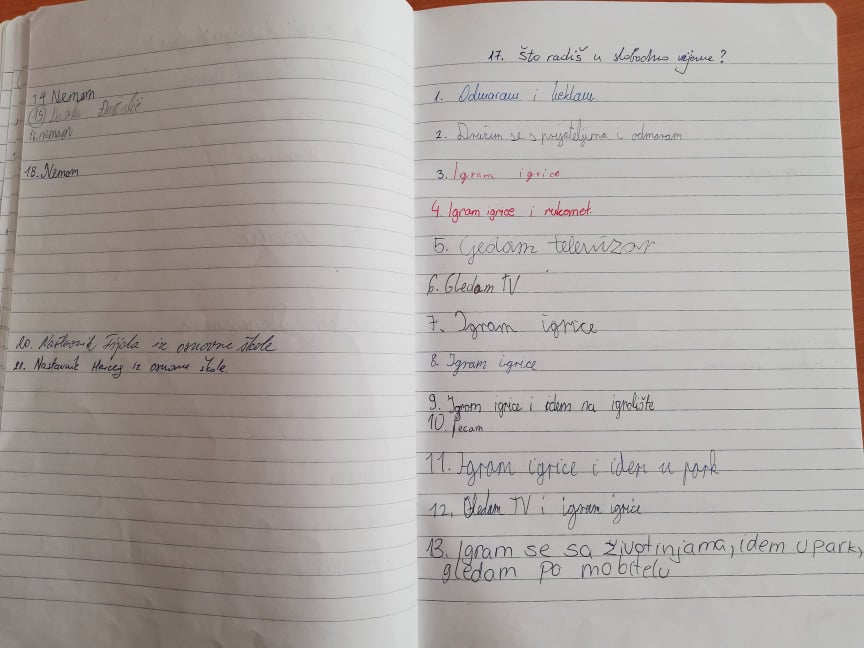 14. Nemam
15
16 nemam
18. Nemam
20. Nastavnik Fijala iz osnovne škole
21. Nastavnik Herceg iz osnovne škole.
17. Što radiš u slobodno vrijeme?
1. Odmaram i heklam.
2. Družim se s prijateljima i odmaram
3. Igram igrice
4. Igram igrice i rukomet.
5. Gledam televizor
6. Gledam TV
7. Igram igrice
8. Igram igrice
9. Igram igrice i idem na igralište
10. Pecam
11. Igram igrice i idem u park
12. Gledam TV i igram igrice
13. Igram se sa životinjama, idem u park,
gledam po mobitelu